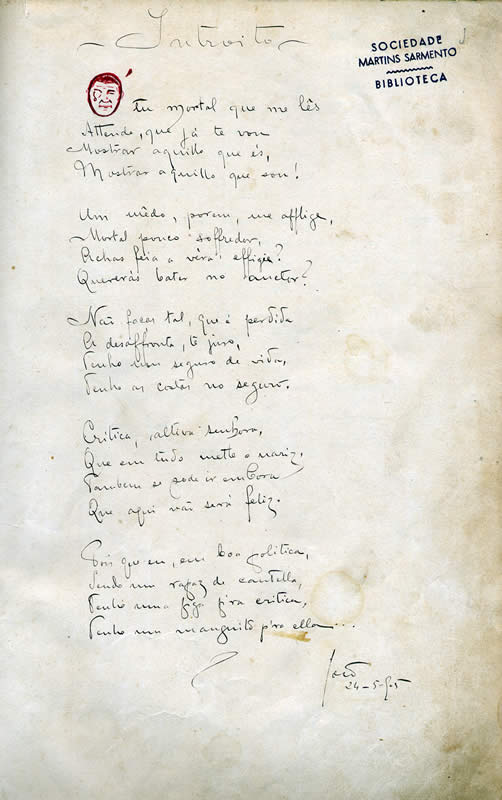 Introito
SOCIEDADE
MARTINS SARMENTO
BIBLIOTECA
Ó tu mortal que me lês
Attende, que já te vou
Mostrar aquillo que és,
Mostrar aquillo que sou!
Um mêdo, porem, me afflige,
Mortal pouco soffredor,
Achas feia a véra effigie?
Quererás bater no auctor?
Não faças tal, que é perdida
A desaffronta, te juro,
Tenho um seguro de vida,
Tenho as costas no seguro.
Critica, altiva senhora,
Que em tudo mette o nariz,
Tambem se pode ir embora
Que aqui não será feliz.
Pois que eu, em boa politica,
Sendo um rapaz de cautella,
Tenho uma figa p'ra critica,
Tenho um manguito p'ra ella...
24-5-905